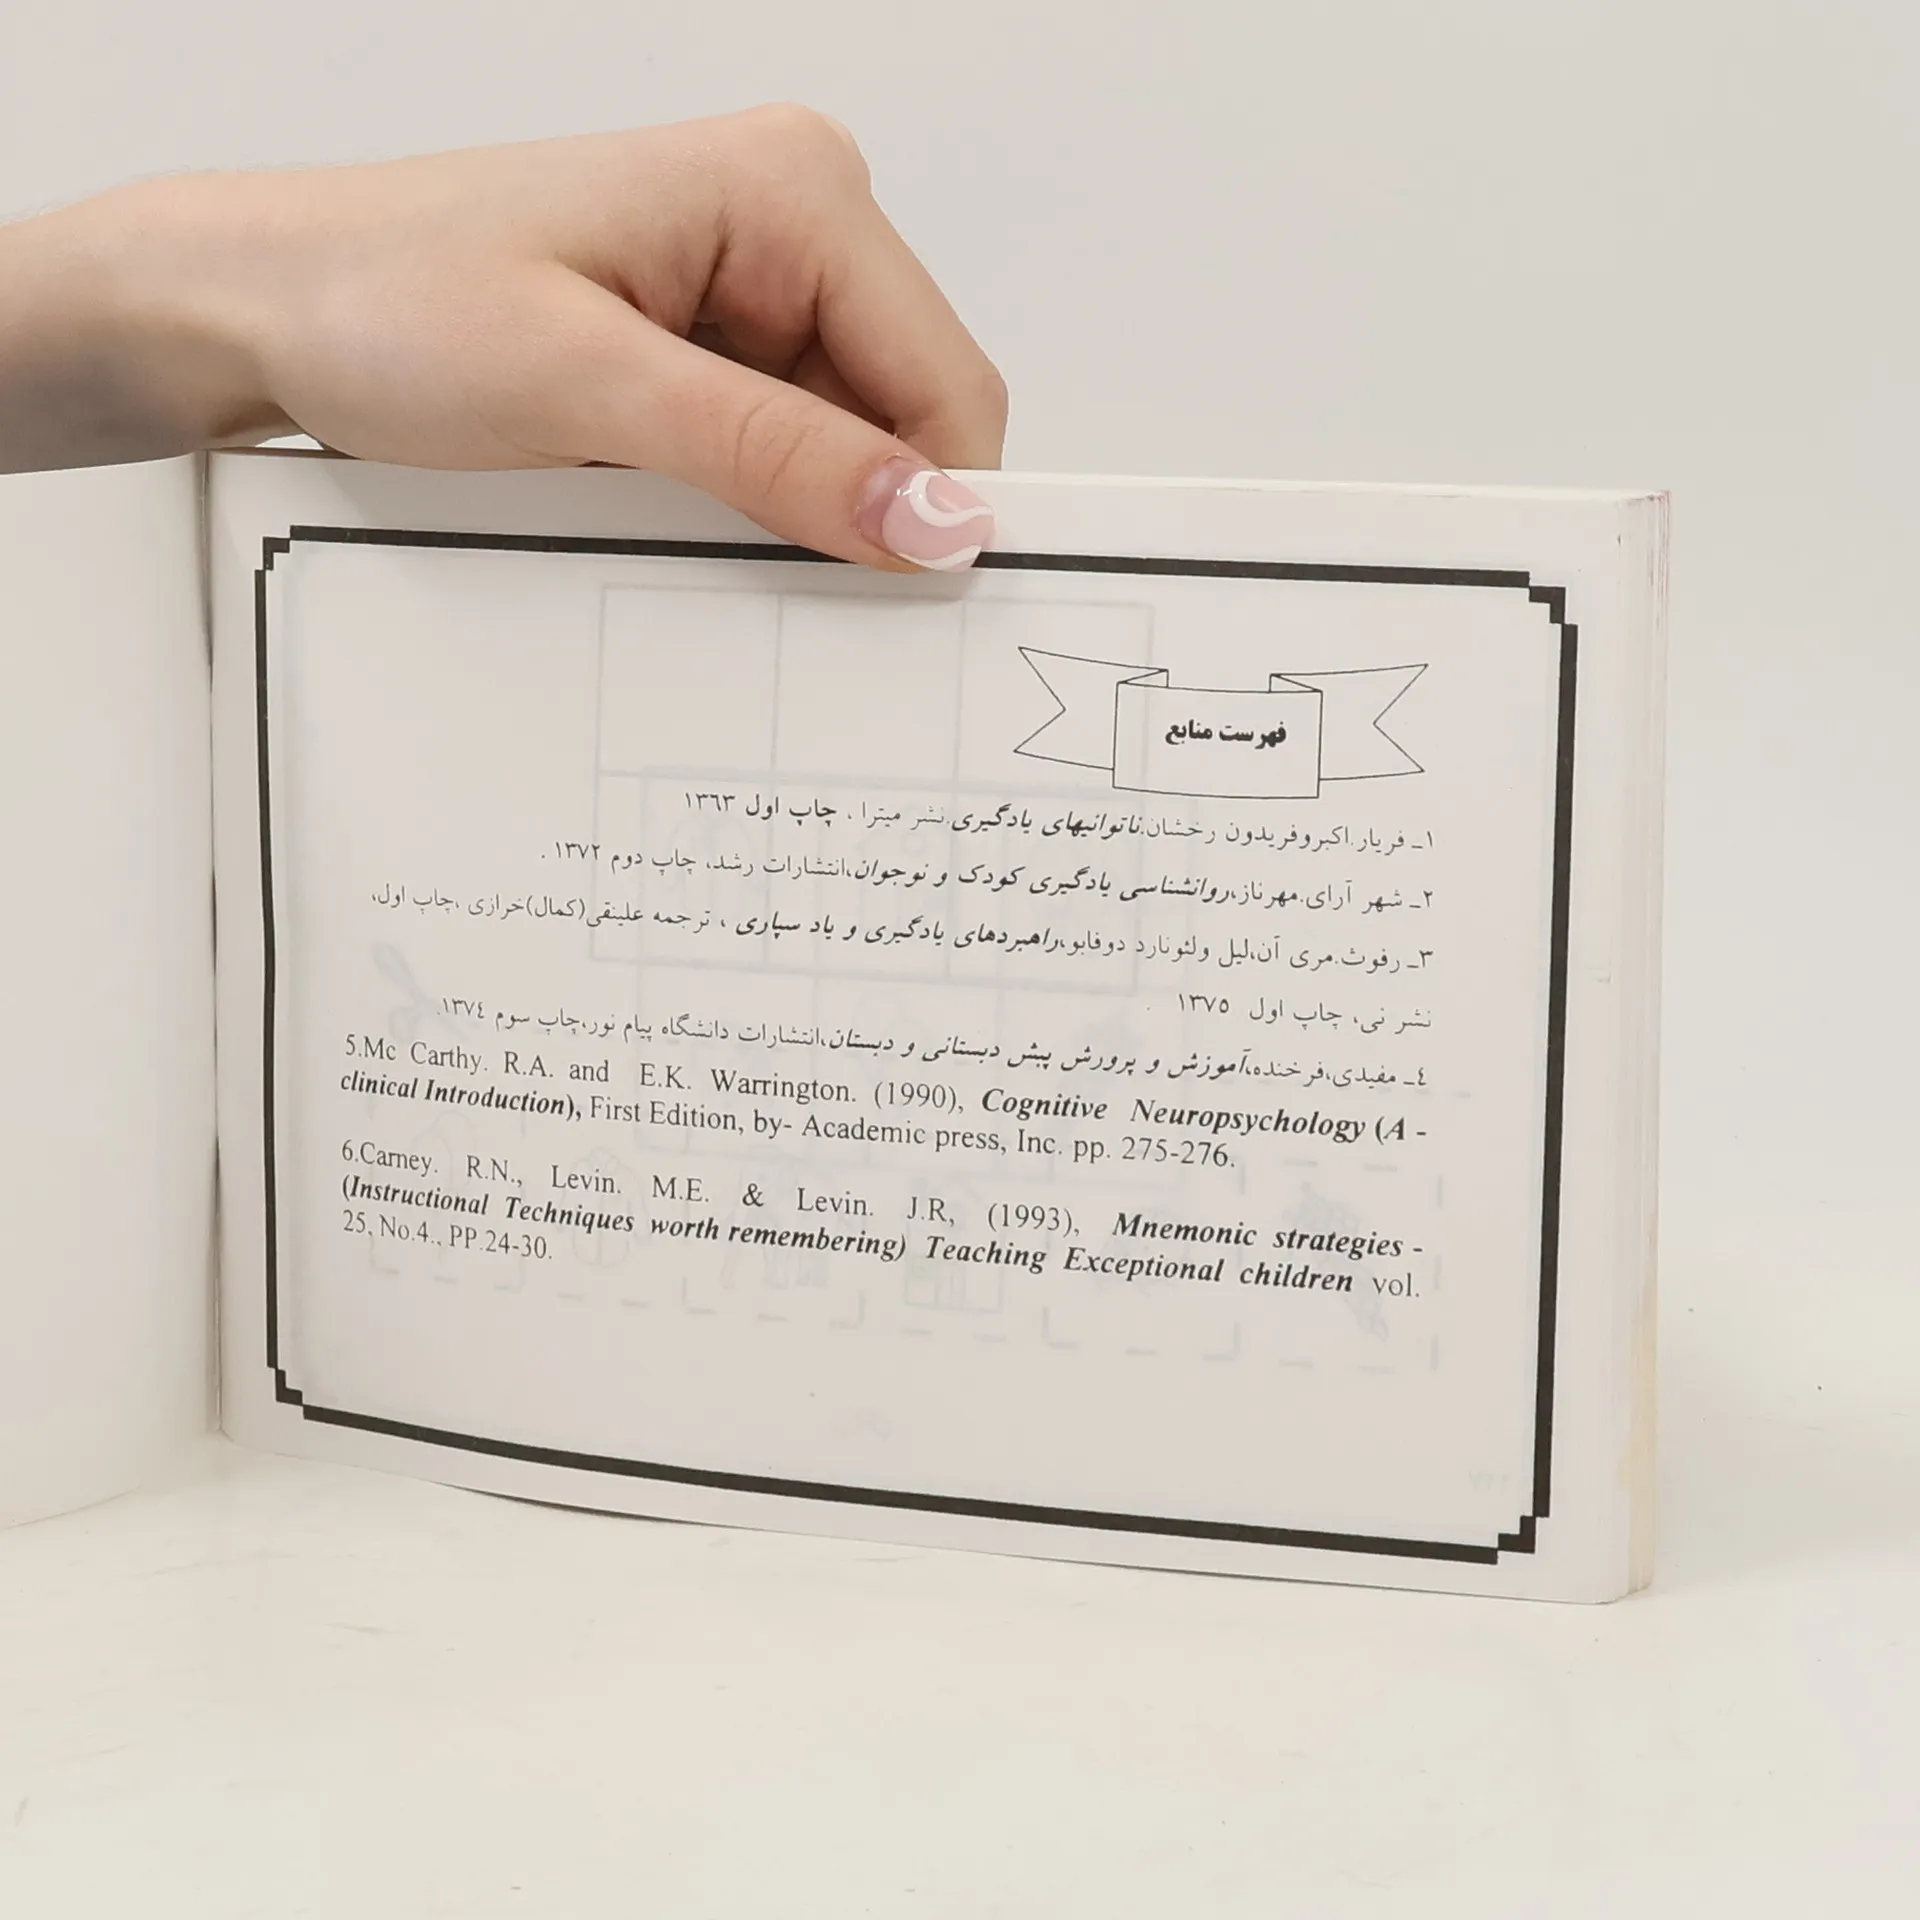 فهرست منابع
۱ـ فریار.اکبروفریدون رخشان.ناتوانیهای یادگیری.نشر میترا ، چاپ اول ۱۳٦۳
۲ـ شهر آرای.مهرناز،روانشناسی یادگیری کودک و نوجوان،انتشارات رشد، چاپ دوم ۱۳۷۲ .
۳ـ رفوث.مری آن،لیل ولئونارد دوفابو،راهبردهای یادگیری و یاد سپاری ، ترجمه علینقی(کمال)خرازی ،چاپ اول،
نشر نی، چاپ اول ۱۳۷۵ .
٤ـ مفیدی،فرخنده،آموزش و پرورش پیش دبستانی و دبستان،انتشارات دانشگاه پیام نور،چاپ سوم ۱۳۷٤.
5.Mc Carthy. R.A. and E.K. Warrington. (1990), Cognitive Neuropsychology (A -
clinical Introduction), First Edition, by- Academic press, Inc. pp. 275-276.
6.Carney. R.N., Levin. M.E. & Levin. J.R, (1993), Mnemonic strategies -
(Instructional Techniques worth remembering) Teaching Exceptional children vol.
25, No.4., PP.24-30.